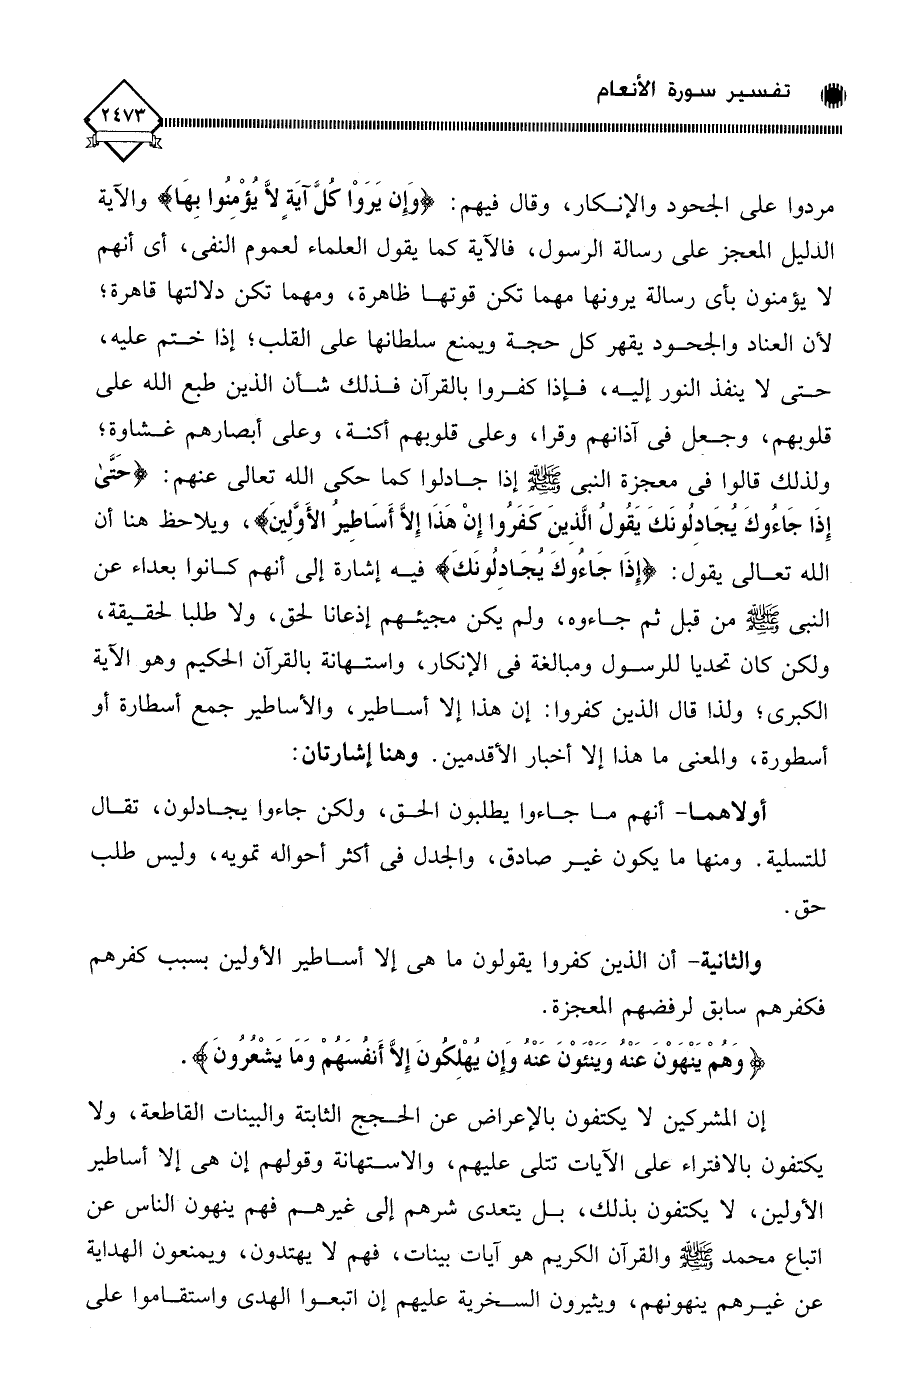 تفسير سورة الأنعام
٢٤٧٣
مردوا على الجحود والإنكار، وقال فيهم: ﴿وَإِن يَرَوْا كُلَّ آيَةٍ لاَّ يُؤْمِنُوا بِهَا﴾ والآية
الدليل المعجز على رسالة الرسول، فالآية كما يقول العلماء لعموم النفى، أى أنهم
لا يؤمنون بأى رسالة يرونها مهما تكن قوتها ظاهرة، ومهما تكن دلالتها قاهرة؛
لأن العناد والجحود يقهر كل حجة ويمنع سلطانها على القلب؛ إذا ختم عليه،
حتى لا ينفذ النور إليه، فإذا كفروا بالقرآن فذلك شأن الذين طبع الله على
قلوبهم، وجعل فى آذانهم وقرا، وعلى قلوبهم أكنة، وعلى أبصارهم غشاوة؛
ولذلك قالوا فى معجزة النبى ﷺ إذا جادلوا كما حكى الله تعالى عنهم: ﴿حَتَّىٰ
إِذَا جَاءُوكَ يُجَادِلُونَكَ يَقُولُ الَّذِينَ كَفَرُوا إِنْ هَذَا إِلاَّ أَسَاطِيرُ الأَوَّلِينَ﴾، ويلاحظ هنا أن
الله تعالى يقول: ﴿إِذَا جَاءُوكَ يُجَادِلُونَكَ﴾ فيه إشارة إلى أنهم كانوا بعداء عن
النبى ﷺ من قبل ثم جاءوه، ولم يكن مجيئهم إذعانا لحق، ولا طلبا لحقيقة،
ولكن كان تحديا للرسول ومبالغة فى الإنكار، واستهانة بالقرآن الحكيم وهو الآية
الكبرى؛ ولذا قال الذين كفروا: إن هذا إلا أساطير، والأساطير جمع أسطارة أو
أسطورة، والمعنى ما هذا إلا أخبار الأقدمين. وهنا إشارتان:
أولاهما- أنهم ما جاءوا يطلبون الحق، ولكن جاءوا يجادلون، تقال
للتسلية. ومنها ما يكون غير صادق، والجدل فى أكثر أحواله تمويه، وليس طلب
حق.
والثانية- أن الذين كفروا يقولون ما هى إلا أساطير الأولين بسبب كفرهم
فكفرهم سابق لرفضهم المعجزة.
﴿وَهُمْ يَنْهَوْنَ عَنْهُ وَيَنْئَوْنَ عَنْهُ وَإِن يُهْلِكُونَ إِلاَّ أَنفُسَهُمْ وَمَا يَشْعُرُونَ﴾.
إن المشركين لا يكتفون بالإعراض عن الحجج الثابتة والبينات القاطعة، ولا
يكتفون بالافتراء على الآيات تتلى عليهم، والاستهانة وقولهم إن هى إلا أساطير
الأولين، لا يكتفون بذلك، بل يتعدى شرهم إلى غيرهم فهم ينهون الناس عن
اتباع محمد ﷺ والقرآن الكريم هو آيات بينات، فهم لا يهتدون، ويمنعون الهداية
عن غيرهم ينهونهم، ويثيرون السخرية عليهم إن اتبعوا الهدى واستقاموا على